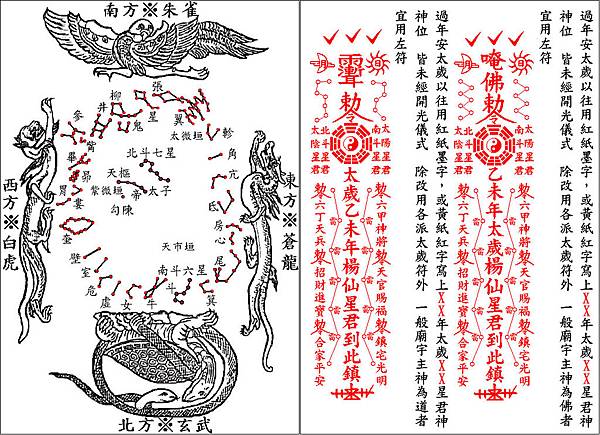 南方※朱雀
張
柳
井
星
鬼
翼
參
觜
太微垣
軫
畢
北斗七星
角
昴
天樞
亢
胃
紫微垣
帝
太子
勾陳
婁
氐
奎
房
心
天市垣
壁
尾
室
南斗六星
危
虛
女
牛
箕
西方※白虎
東方※蒼龍
北方※玄武
過年安太歲以往用紅紙墨字，或黃紙紅字寫上XX年太歲XX星君神
神位 皆未經開光儀式 除改用各派太歲符外 一般廟宇主神為佛者
宜用左符
太陽星君
南斗星君
勅六甲神將 勅天官賜福 勅鎮宅光明
唵佛勅令
乙未年太歲楊仙星君到此鎮
北斗星君
太陰星君
勅六丁天兵 勅招財進寶 勅合家平安
過年安太歲以往用紅紙墨字，或黃紙紅字寫上XX年太歲XX星君神
神位 皆未經開光儀式 除改用各派太歲符外 一般廟宇主神為道者
宜用左符
太陽星君
南斗星君
勅六甲神將 勅天官賜福 勅鎮宅光明
勅令
太歲乙未年楊仙星君到此鎮
北斗星君
太陰星君
勅六丁天兵 勅招財進寶 勅合家平安